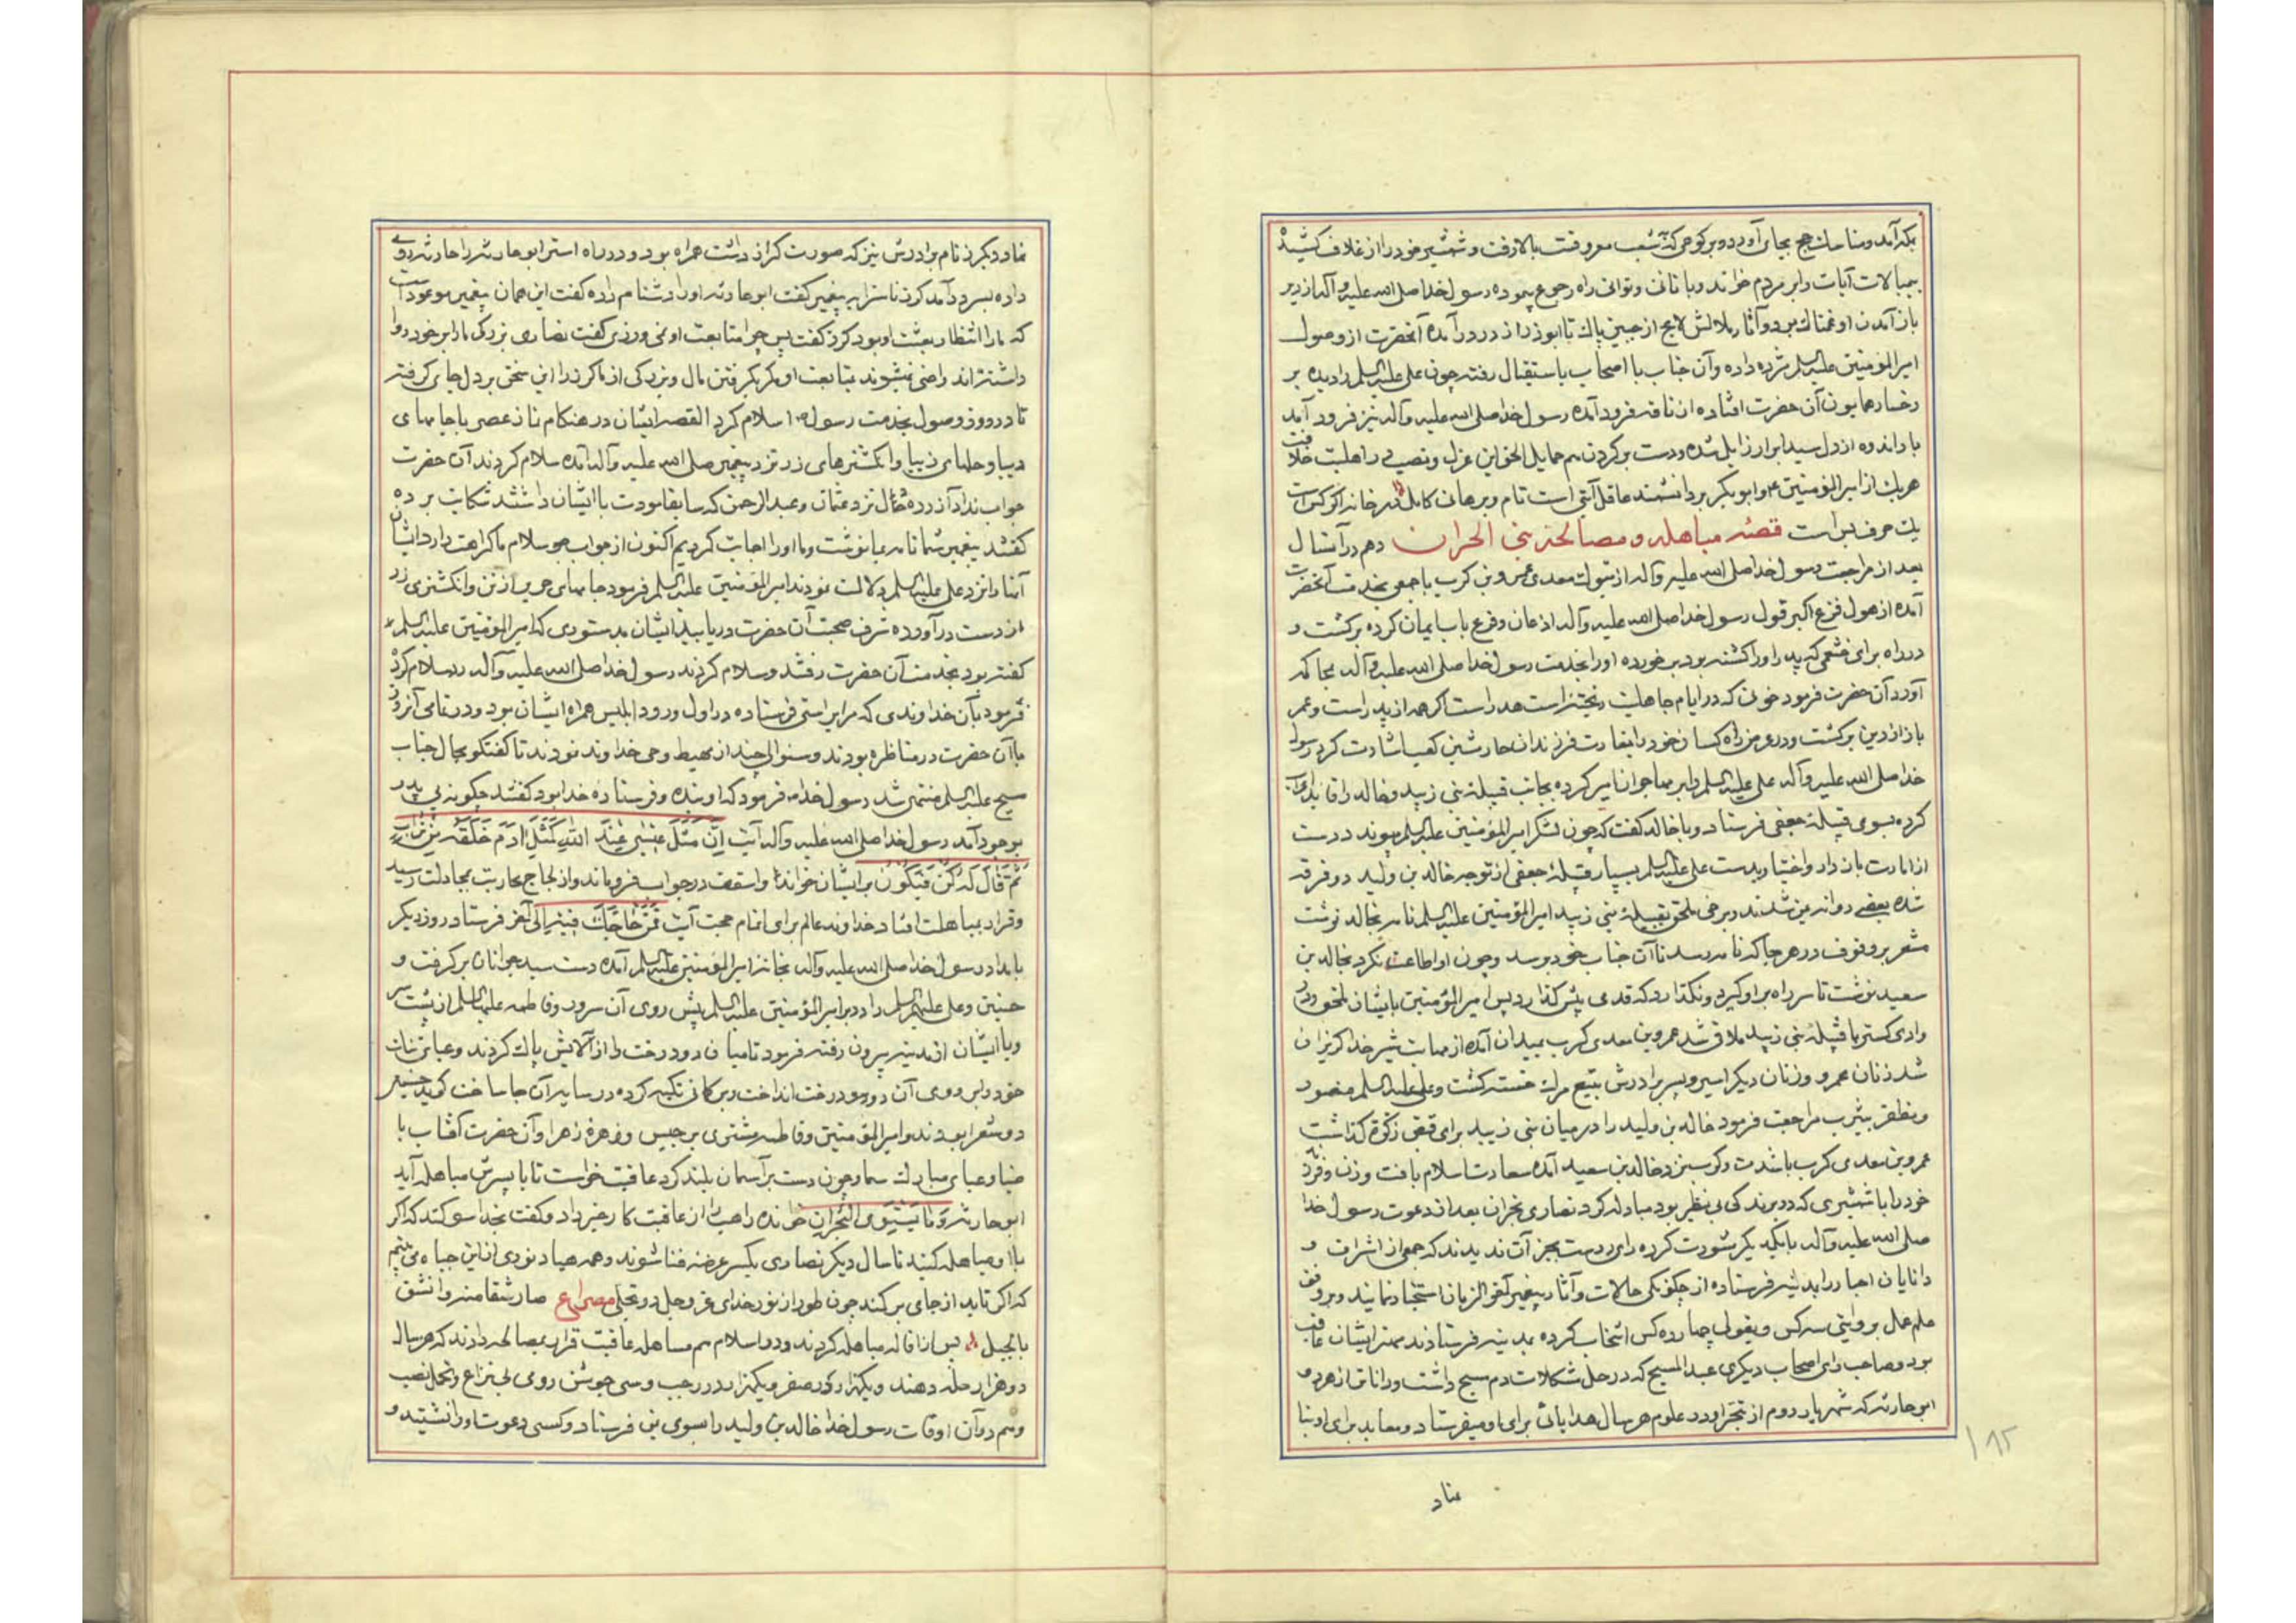 بمکه آمد و مناسک حج بجای آورد و بر کوهی که بشعب معروفست بالا رفت و شمشیر خود را از غلاف کشیده
آیات را بر مردم خواند و راه رجوع پیموده رسول خدا صلی الله علیه و آله از دیر
باز آمدن او غمناک بود و آثار ملالش لایح از جبین پاک تا ابوذر از در درآمده آنحضرت از وصول
امیرالمؤمنین علیه السلم مژده داده و آن جناب با اصحاب باستقبال رفته چون علی علیه السلم را دیده بر
رخسار همایون آن حضرت افتاده از ناقه فرود آمده رسول خدا صلی الله علیه و آله نیز فرود آمد
بار اندوه از دل سید ابرار زایل شده و دست بر گردن هم حمایل الخ و این عزل و نصب در اهلیت خلافت
هریک از امیرالمؤمنین ع و ابوبکر بر دانشمند عاقل آیتی است تام و برهانی کامل در خانه اگر کس است
یک حرف بس است قصه مباهله و مصالحه بنی الحران دهم در آنسال
بعد از مراجعت رسول خدا صلی الله علیه و آله از تبوک معدی عمرو بن کرب با جمعی بخدمت آنحضرت
آمده از هول فزع اکبر قول رسول خدا صلی الله علیه و آله اذعان و فزع باب ایمان کرده برگشت و
در راه برای خثعمی که پدر او را کشته بود بر خورده او را بخدمت رسول خدا صلی الله علیه و آله بمحاکمه
آورد آن حضرت فرمود خونی که در ایام جاهلیت ریخته است هدر است اگر همه از پدر است و عمر
باز از دین برگشت و در عرض راه کسان خود را بغارت فرزندان حارث بن کعب اشارت کرد رسول
خدا صلی الله علیه و آله علی علیه السلم را بر مهاجران امیر کرده بجانب قبیله بنی زبید و خالد را قاید اعراب
کرده بسوی قبیله جعفی فرستاد و با خالد گفت که چون لشکر امیرالمؤمنین علیه السلم پیوند د دست
از امارت باز دار و اختیار بدست علی علیه السلم بسپار قبیله جعفی از توجه خالد بن ولید دو فرقه
شده بعضی روانه یمن شدند و برخی ملحق بقبیله بنی زبید امیرالمؤمنین علیه السلم نامه بخالد نوشت
مشعر بر وقوف در هر جا که نامه رسد تا آن جناب خود برسد و چون او اطاعت نکرد بخالد بن
سعید نوشت تا سر راه بر او گیرد و نگذارد که قدمی پیش گذارد پس امیرالمؤمنین بایشان ملحق و در
وادی کسر با قبیله بنی زبید ملاقی شد عمرو بن معدی کرب بمیدان آمده از مهابت شیر خدا گریزان
شد زنان عمرو و زنان دیگر اسیر و پسر برادرش بتیغ مرگ خسته گشت و علی علیه السلم منصور
و مظفر بیثرب مراجعت فرمود خالد بن ولید را در میان بنی زبید برای قبض زکوة گذاشت
عمرو بن معدی کرب با خالد بن سعید آمده سعادت اسلام یافت و زن و فرزند
خود را با شمشیری که در برندگی بی نظیر بود مبادله کرد نصاری نجران بعد از دعوت رسول خدا
صلی الله علیه و آله با یکدیگر مشورت کرده رای درست بجز آن ندیدند که جمعی از اشراف و
دانایان احبار را بمدینه فرستاده از چگونگی حالات و آثار پیغمبر آخر الزمان استخبار نمایند و بر وفق
علم عمل بروایتی سه کس و بقولی چهارده کس انتخاب کرده بمدینه فرستادند مهتر ایشان عاقب
بود و صاحب رای اصحاب دیگری عبد المسیح که در حل مشکلات دم مسیح داشت و داناتر از هر دو
ابو حارثه که شهریار روم از تبحر او در علوم هر سال هدایای برای او میفرستاد و معابد برای او بنا
عناد
۱۸۲
نماد و دیگر کرز نام برادرش نیز که صورت گراز داشت همراه بود و در راه استر ابو حارثه را حارثه روی
داده بسر در آمد کرز ناسزا به پیغمبر گفت ابو حارثه او را دشنام داده گفت این همان پیغمبر موعود است
که ما را انتظار بعثت او بود کرز گفت پس چرا متابعت او نمی ورزی گفت نصاری بزرگی ما را بر خود روا
داشته اند راضی نمیشوند بمتابعت او مگر بگرفتن مال و بزرگی از ما کرز را این سخن بر دل جای گرفته
تا در روز وصول بخدمت رسول ص اسلام کرد القصه ایشان در هنگام نماز عصر با جامهای
دیبا و حلهای زیبا و انگشترهای زر نزد پیغمبر صلی الله علیه و آله آمده سلام کردند آن حضرت
جواب نداد آزرده خاطر نزد عثمان و عبد الرحمن که سابقا مودت با ایشان داشتند شکایت برده
گفتند پیغمبر شما نامه بما نوشت و ما او را اجابت کردیم اکنون از جواب سلام ما کراهت دارد ایشان
آنها را نزد علی علیه السلم دلالت نمودند امیرالمؤمنین علیه السلم فرمود جامهای حریر از تن و انگشتری زر
از دست در آورده شرف صحبت آن حضرت دریابید ایشان بدستوری که امیرالمؤمنین علیه السلم
گفته بود بخدمت آن حضرت رفتند و سلام کردند رسول خدا صلی الله علیه و آله رد سلام کرده
فرمود بآن خداوندی که مرا براستی فرستاده در اول ورود ابلیس همراه ایشان بود و در تمامی آنروز
با آن حضرت در مناظره بودند و سئوالی چند از مهبط وحی خداوند نمودند تا گفتگو بحال جناب
مسیح علیه السلم منتهی شد رسول خدا ص فرمود که او بنده و فرستاده خدا بود گفتند چگونه بی پدر
بوجود آمد رسول خدا صلی الله علیه و آله آیت اِنَّ مَثَلَ عِیسٰی عِنْدَ اللّٰهِ کَمَثَلِ اٰدَمَ خَلَقَهُ مِنْ تُرَابٍ
ثُمَّ قَالَ لَهُ کُنْ فَیَکُونُ بر ایشان خواند و اسقف در جواب فرو ماند و از لجاج محاربت بمجادلت رسید
و قرار بمباهلت افتاد خداوند عالم برای اتمام حجت آیت فَمَنْ حَاجَّکَ فِیهِ الی آخر فرستاد روز دیگر
بامداد رسول خدا صلی الله علیه و آله بخانه امیرالمؤمنین علیه السلم آمده دست سید جوانان بر گرفت و
حسنین و علی علیهم السلم را در بر امیرالمؤمنین علیه السلم پیش روی آن سرور و فاطمه علیها السلم از پشت سر
و با ایشان از مدینه بیرون رفته فرمود تا میان دو درخت را از آلایش پاک کردند و عبای
خود را بر روی آن دو درخت انداخت و بر کمانی تکیه کرده در سایه آن جا ساخت گوید حسنین
دو شعرا بودند و امیرالمؤمنین و فاطمه مشتری برجیس و زهره زهرا و آن حضرت آفتاب با
ضیا و عبای مبارک سما و چون دست بر آسمان بلند کرد عاقب خواست تا با پسرش مباهله آید
ابو حارثه خوانده راهب از عاقبت کار خبر داد و گفت بخدا سوگند که اگر
با او مباهله کنید تا سال دیگر نصاری یکسر عرضه فنا شوند
که اگر تابد از جای بر کند چون طور از نور خدای عز و جل در تجلی مصراع صار شقا منه وانشق
بالجبل پس ازاقاله مباهله کردند و در اسلام هم مساهله عاقبت قرار بمصالحه دادند که هر سال
دو هزار حله دهند و یکهزار در صفر و یکهزار در رجب و سی جوشن رومی
و هم در آن اوقات رسول خدا خالد بن ولید را بسوی یمن فرستاد و کسی دعوت او را نشنید و